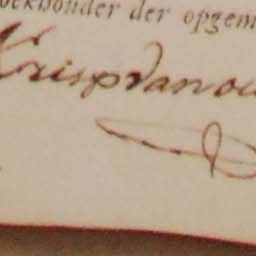 oekhouder der opgem
Krispvanou